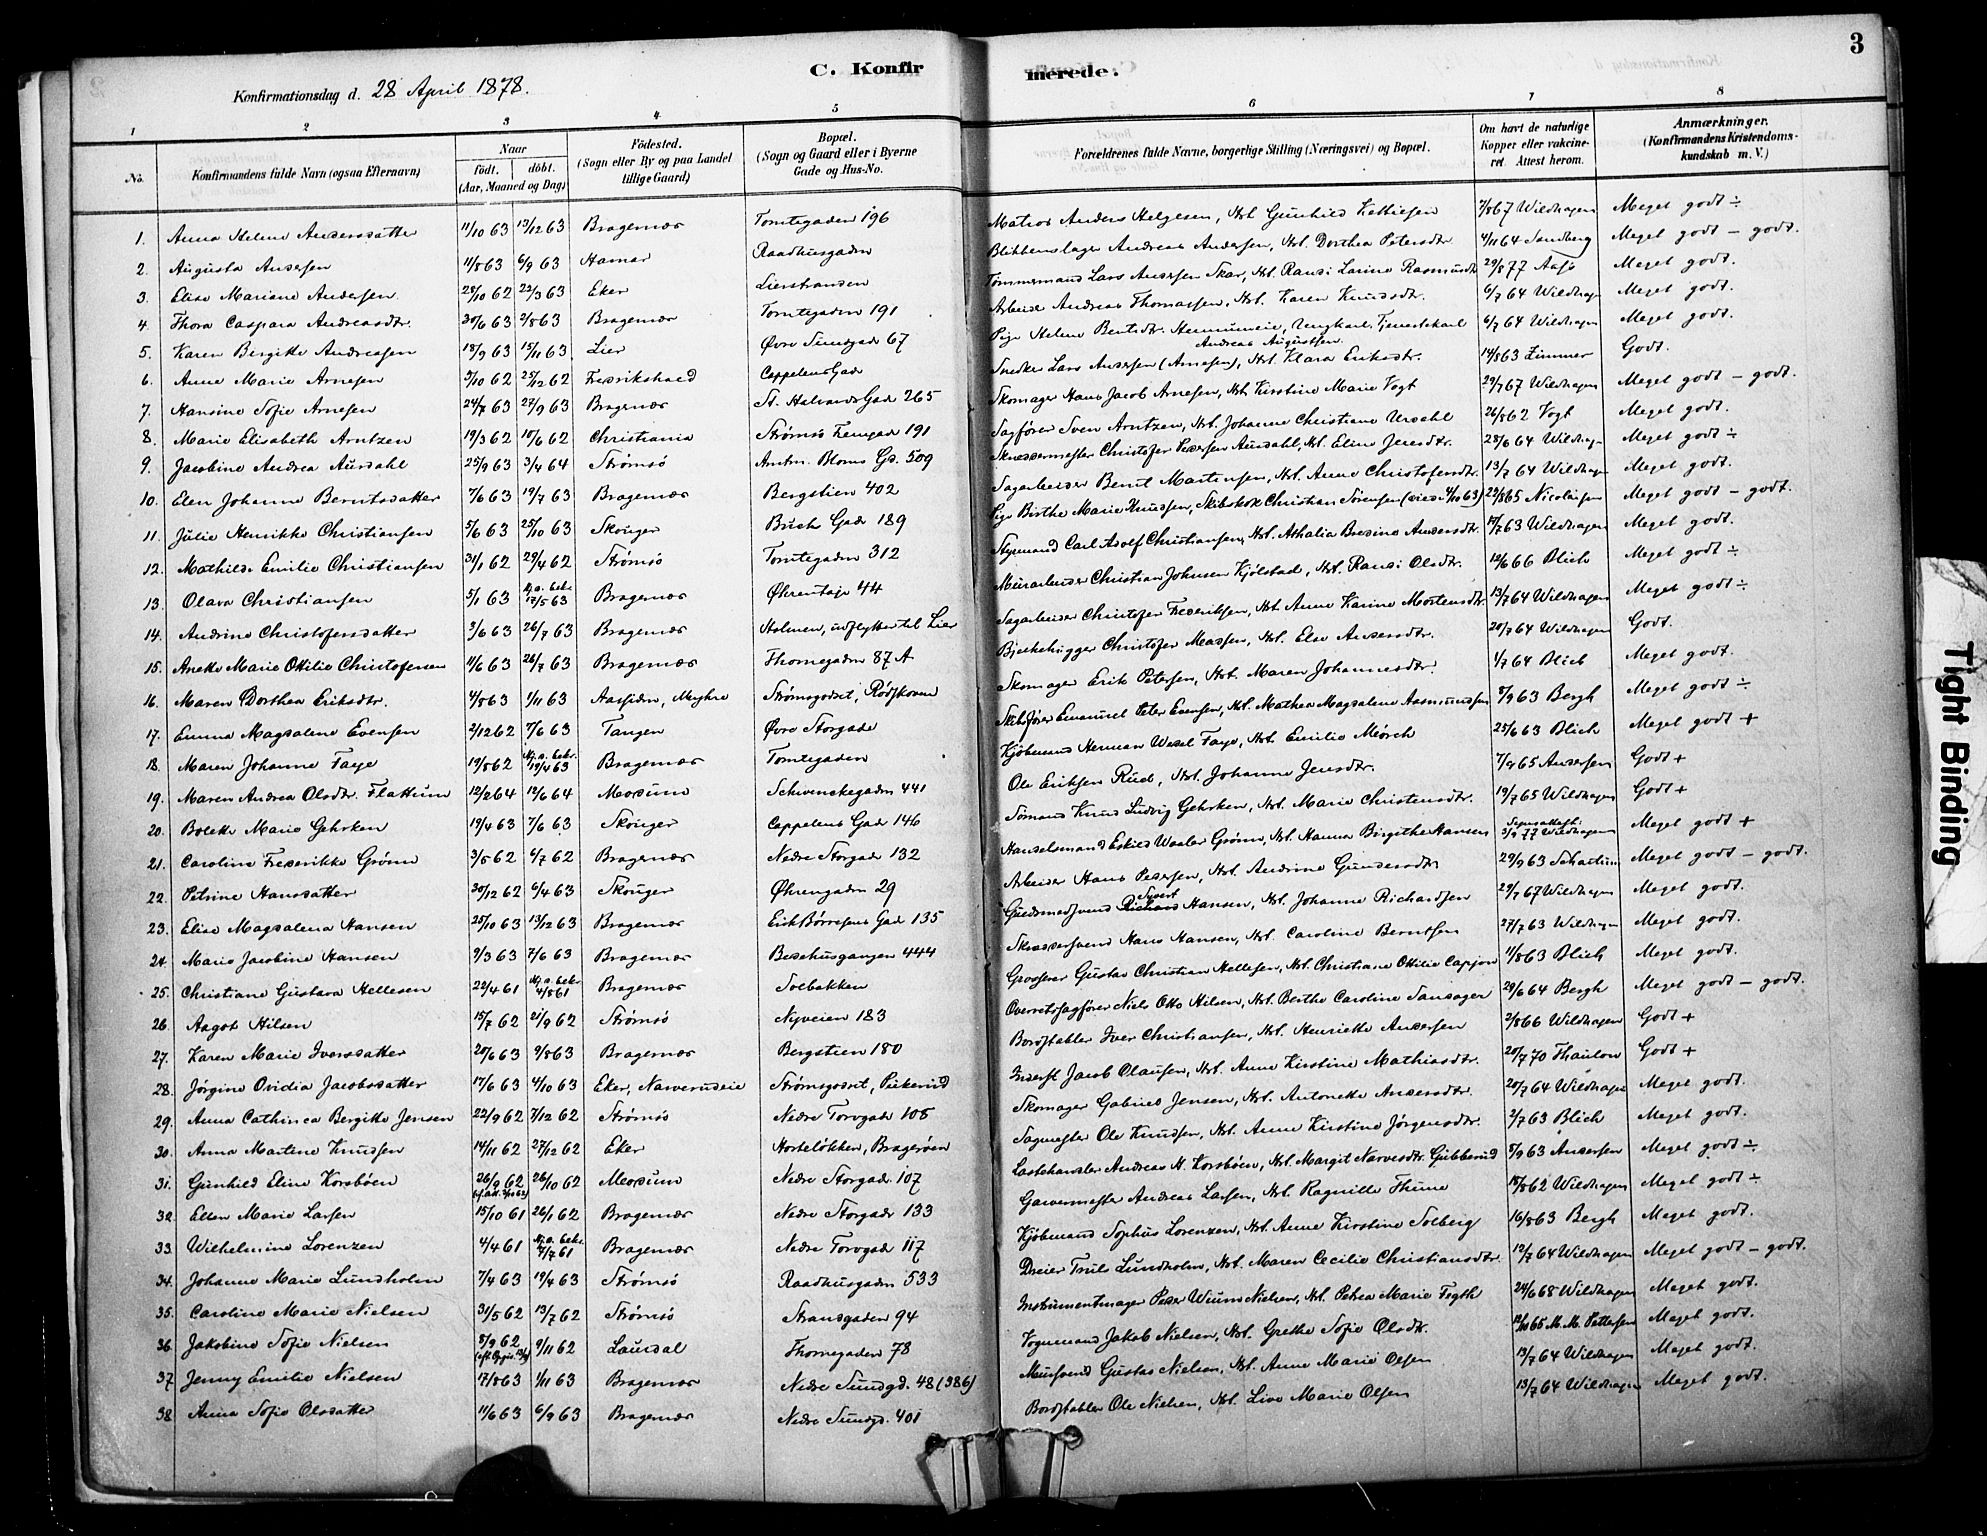 3
C. Konfir
merede.
Konfirmationsdag d. 28 April 1878.
1 2 3 4 5 5 6 7 8
No.
Konfirmandens fulde Navn (ogsaa Efternavn)
Naar
födt. döbt.
(Aar, Maaned og Dag)
Födested.
(Sogn eller By og paa Landet
tillige Gaard)
Bopæl.
(Sogn og Gaard eller i Byerne
Gade og Hus-No.
Forældrenes fulde Navne, borgerlige Stilling (Næringsvei) og Bopæl.
Om havt de naturlige
Kopper eller vakcine-
ret. Attest herom.
Anmærkninger.
(Konfirmandens Kristendoms-
kundskab m. V.)
1. Anna Helene Andersdatter 11/10 63 13/12 63 Bragernæs Tomtegaden 196 Matros Anders Helgesen, Gunhild 7/8 67 Wildhagen Meget godt ÷
2. Augusta Andersen 11/8 63 6/9 63 Hamar Raadhusgaden Blikkenslager Andreas Andersen, Hst. Dorthea Petersdtr. 4/11 64 Sandberg Meget godt - godt.
3. Elise Mariane Andersen 28/10 62 22/3 63 Eker Lierstranden Tömmermand Lars Andersen Skar, Hst. Randi Larine Rasmusdtr 29/8 77 Aasö Meget godt.
4. Thora Caspara Andreasdtr. 30/6 63 2/8 63 Bragernæs Tomtegaden 191 Arbeider Andreas Thomassen, Hst. Karen Knudsdtr. 6/7 64 Wildhagen Meget godt.
5. Karen Bergitte Andreasen 18/9 63 15/11 63 Lier Øvre Sundgade 67 Pige Helene Berntsdtr. Ungkarl, Tjenestekarl 6/7 64 Wildhagen Meget godt.
Andreas Augustsen.
6. Anne Marie Arnesen 3/10 62 25/12 62 Fredrikshald Cappelens Gade Snedker Lars Andersen (Arnesen), Hst. Klara Eriksdtr. 14/8 63 Zimmer Godt.
7. Hansine Sofie Arnesen 24/7 63 27/9 63 Bragernæs St. Halvards Gade 265 Skomager Hans Jacob Arnesen, Hst. Kirstine Marie Vogt 29/7 67 Wildhagen Meget godt - godt.
8. Marie Elisabeth Arntzen 19/3 62 10/6 62 Christiania Strömsö Tverrgade 191 Sagförer Sven Arntzen, Hst. Johanne Christiane Urdahl 26/8 62 Vogt Meget godt.
9. Jacobine Andrea Aursahl 25/9 63 3/4 64 Strömsö Amtm. Bloms Gd. 509 Skræddermester Christofer Pedersen Aursahl, Hst. Eline Jensdtr. 28/6 64 Wildhagen Meget godt ÷
10. Elen Johanne Berntsdatter 7/6 63 19/7 63 Bragernæs Bergstien 402 Sagarbeider Bernt Martinsen, Hst. Anne Christofersdtr. 13/7 64 Wildhagen Meget godt.
11. Julie Henrikke Christiansen 5/6 63 25/10 63 Skouger Buch Gade 189 Pige Birthe Marie Knudsen, Skibskok Christian Sörensen (viede 4/10 63) 22/8 65 Nicolaisen Meget godt - godt.
12. Mathilde Emilie Christiansen 31/1 62 29/4 62 Strömsö Tomtegaden 312 Styrmand Carl Adolf Christiansen, Hst. Athalia Andersdtr. 17/7 63 Wildhagen Meget godt.
13. Olava Christiansen 5/1 63 Hj.d. bekr. 17/5 63 Bragernæs Øhrentoje 44 Murarbeider Christian Johnsen Kjölstad, Hst. Randi Olsdtr. 12/6 66 Blich Meget godt ÷
14. Andrine Christofersdatter 3/6 63 26/7 63 Bragernæs Holmen, udflyttet til Lier Sagarbeider Christofer Fredriksen, Hst. Anne Karine Mortensdtr. 13/7 64 Wildhagen Meget godt ÷
15. Anette Marie Ottilie Christofersen 11/6 63 26/7 63 Bragernæs Thornegaden 87 A Bjelkehugger Christofer Madsen, Hst. Else Andersdtr. 20/7 64 Wildhagen Godt.
16. Maren Dorthea Eriksdtr. 4/8 63 1/11 63 Strömsgodset, Rödskoven Skomager Erik Petersen, Hst. Maren Johannesdtr. 1/7 64 Blich Meget godt.
17. Emma Magdalene Evensen 2/12 62 7/6 63 Tangen Øvre Storgade Skibsförer Emanuel Peter Evensen, Hst. Mathea Magdalene Aasmundsen 8/9 63 Bergh Meget godt ÷
18. Maren Johanne Faye 19/8 62 Hj.d. bekr. 19/4 63 Bragernæs Tomtegaden Kjöbmand Herman Wesel Faye, Hst. Emilie Mörch 25/6 63 Blich Meget godt +
19. Maren Andrea Olsdtr. Flattum 12/2 64 12/6 64 Modum Schwenckegaden 441 Ole Eriksen Rud, Hst. Johanne Jensdtr. 7/9 65 Andersen Godt +
20. Bolette Marie Gehrken 19/4 63 7/6 63 Skouger Cappelens Gade 146 Sömand Knud Ludvig Gehrken, Hst. Marie Christensdtr. 19/7 65 Wildhagen Godt +
21. Caroline Fredrikke Grönn 3/5 62 6/7 62 Bragernæs Nedre Storgade 132 Handelsmand Eskild Waaler Grönn, Hst. Hanna Birgithe Hansen 3/9 77 Wildhagen Meget godt +
22. Petrine Hansdatter 30/12 62 6/4 63 Skouger Øhrengaden 29 Arbeider Hans Pedersen, Hst. Andrine Gundersdtr 29/9 63 Meget godt - godt.
23. Elise Magdalena Hansen 25/10 63 13/12 63 Bragernæs Erik Börresens Gade 135 Guldsmedsvend Hansen, Hst. Johanne Richardsen 29/7 67 Wildhagen Meget godt.
24. Marie Jacobine Hansen 9/3 63 7/6 63 Bragernæs Bedehusgangen 444 Skræddersvend Hans Hansen, Hst. Caroline Berntsen 27/7 63 Wildhagen Meget godt.
25. Christiane Gustava Hellesen 22/4 61 Hj.d. bekr. 4/8 61 Bragernæs Solbakken Grosserer Gustav Christian Hellesen, Hst. Christiane Ottilie Cappelen 11/8 63 Blich Meget godt.
26. Aagot Hilsen 15/7 62 21/9 62 Strömsö Nyveien 183 Overretssagförer Niels Otto Hilsen, Hst. Berthe Caroline Dandager 29/6 64 Bergh Meget godt - godt.
27. Karen Marie Iversdatter 20/6 63 9/8 63 Bragernæs Bergstien 180 Bordstabler Iver Christiansen, Hst. Henriette Andersen 2/8 66 Wildhagen Godt +
28. Jörgine Ovidia Jacobsdatter 17/6 63 4/10 63 Eker, Narverudeie Strömsgodset, Pukerud Inderst Jacob Olausen, Hst. Anne Kirstine Mathiasdtr. 20/7 70 Thaulow Godt +
29. Anna Cathinca Bergitte Jensen 22/9 62 7/12 62 Strömsö Nedre Torvgade 105 Skomager Gabriel Jensen, Hst. Antonette Andersdtr. 20/7 64 Wildhagen Meget godt.
30. Anna Martine Knudsen 14/11 62 27/12 62 Eker Hortelökken, Bragerøen Sagmester Ole Knudsen, Hst. Anne Kirstine Jörgensdtr. 2/7 63 Blich Meget godt.
31. Gunhild Eline Korsböen 26/9 62 26/10 62 Modum Nedre Storgade 107 Lastehandler Andreas H. Korsböen, Hst. Margit Narvesdtr. Gubberud 8/9 63 Andersen Meget godt ÷
32. Ellen Marie Larsen 15/10 61 26/1 62 Bragernæs Nedre Storgade 133 Garvermester Andreas Larsen, Hst. Ragnille Thune 18/8 62 Wildhagen Meget godt ÷
33. Wilhelmine Lorenzen 4/4 61 Hj.d. bekr. 7/7 61 Bragernæs Nedre Torvgade 117 Kjöbmand Sophus Lorenzen, Hst. Anne Kirstine Solberg 16/8 63 Bergh Meget godt.
34. Johanne Marie Lundholm 7/4 63 19/4 63 Strömsö Raadhusgaden 533 Dreier Truls Lundholm, Hst. Maren Cecilie Christiansdtr. 12/7 64 Wildhagen Meget godt - godt.
35. Caroline Marie Nielsen 31/5 62 13/7 62 Strömsö Strandgaden 94 Instrumentmager Peder Wium Nielsen, Hst. Petrea Marie Figth 24/6 68 Wildhagen Meget godt.
36. Jakobine Sofie Nielsen 8/9 62 9/11 62 Laurdal Thornegaden 78 Vognmand Jakob Nielsen, Hst. Grethe Sofie Olsdtr. 12/10 65 M. M. Pettersen Meget godt.
37. Jenny Emilie Nielsen 17/8 63 1/11 63 Bragernæs Nedre Sundgd. 48 (386) Mursvend Gustav Nielsen, Hst. Anne Marie Olsen 13/7 64 Wildhagen Meget godt.
38. Anna Sofie Olsdatter 11/6 63 6/9 63 Bragernæs Nedre Sundgd. 401 Bordstabler Ole Nielsen, Hst. Live Marie Olsen 13/7 64 Wildhagen Meget godt.
Tight Binding